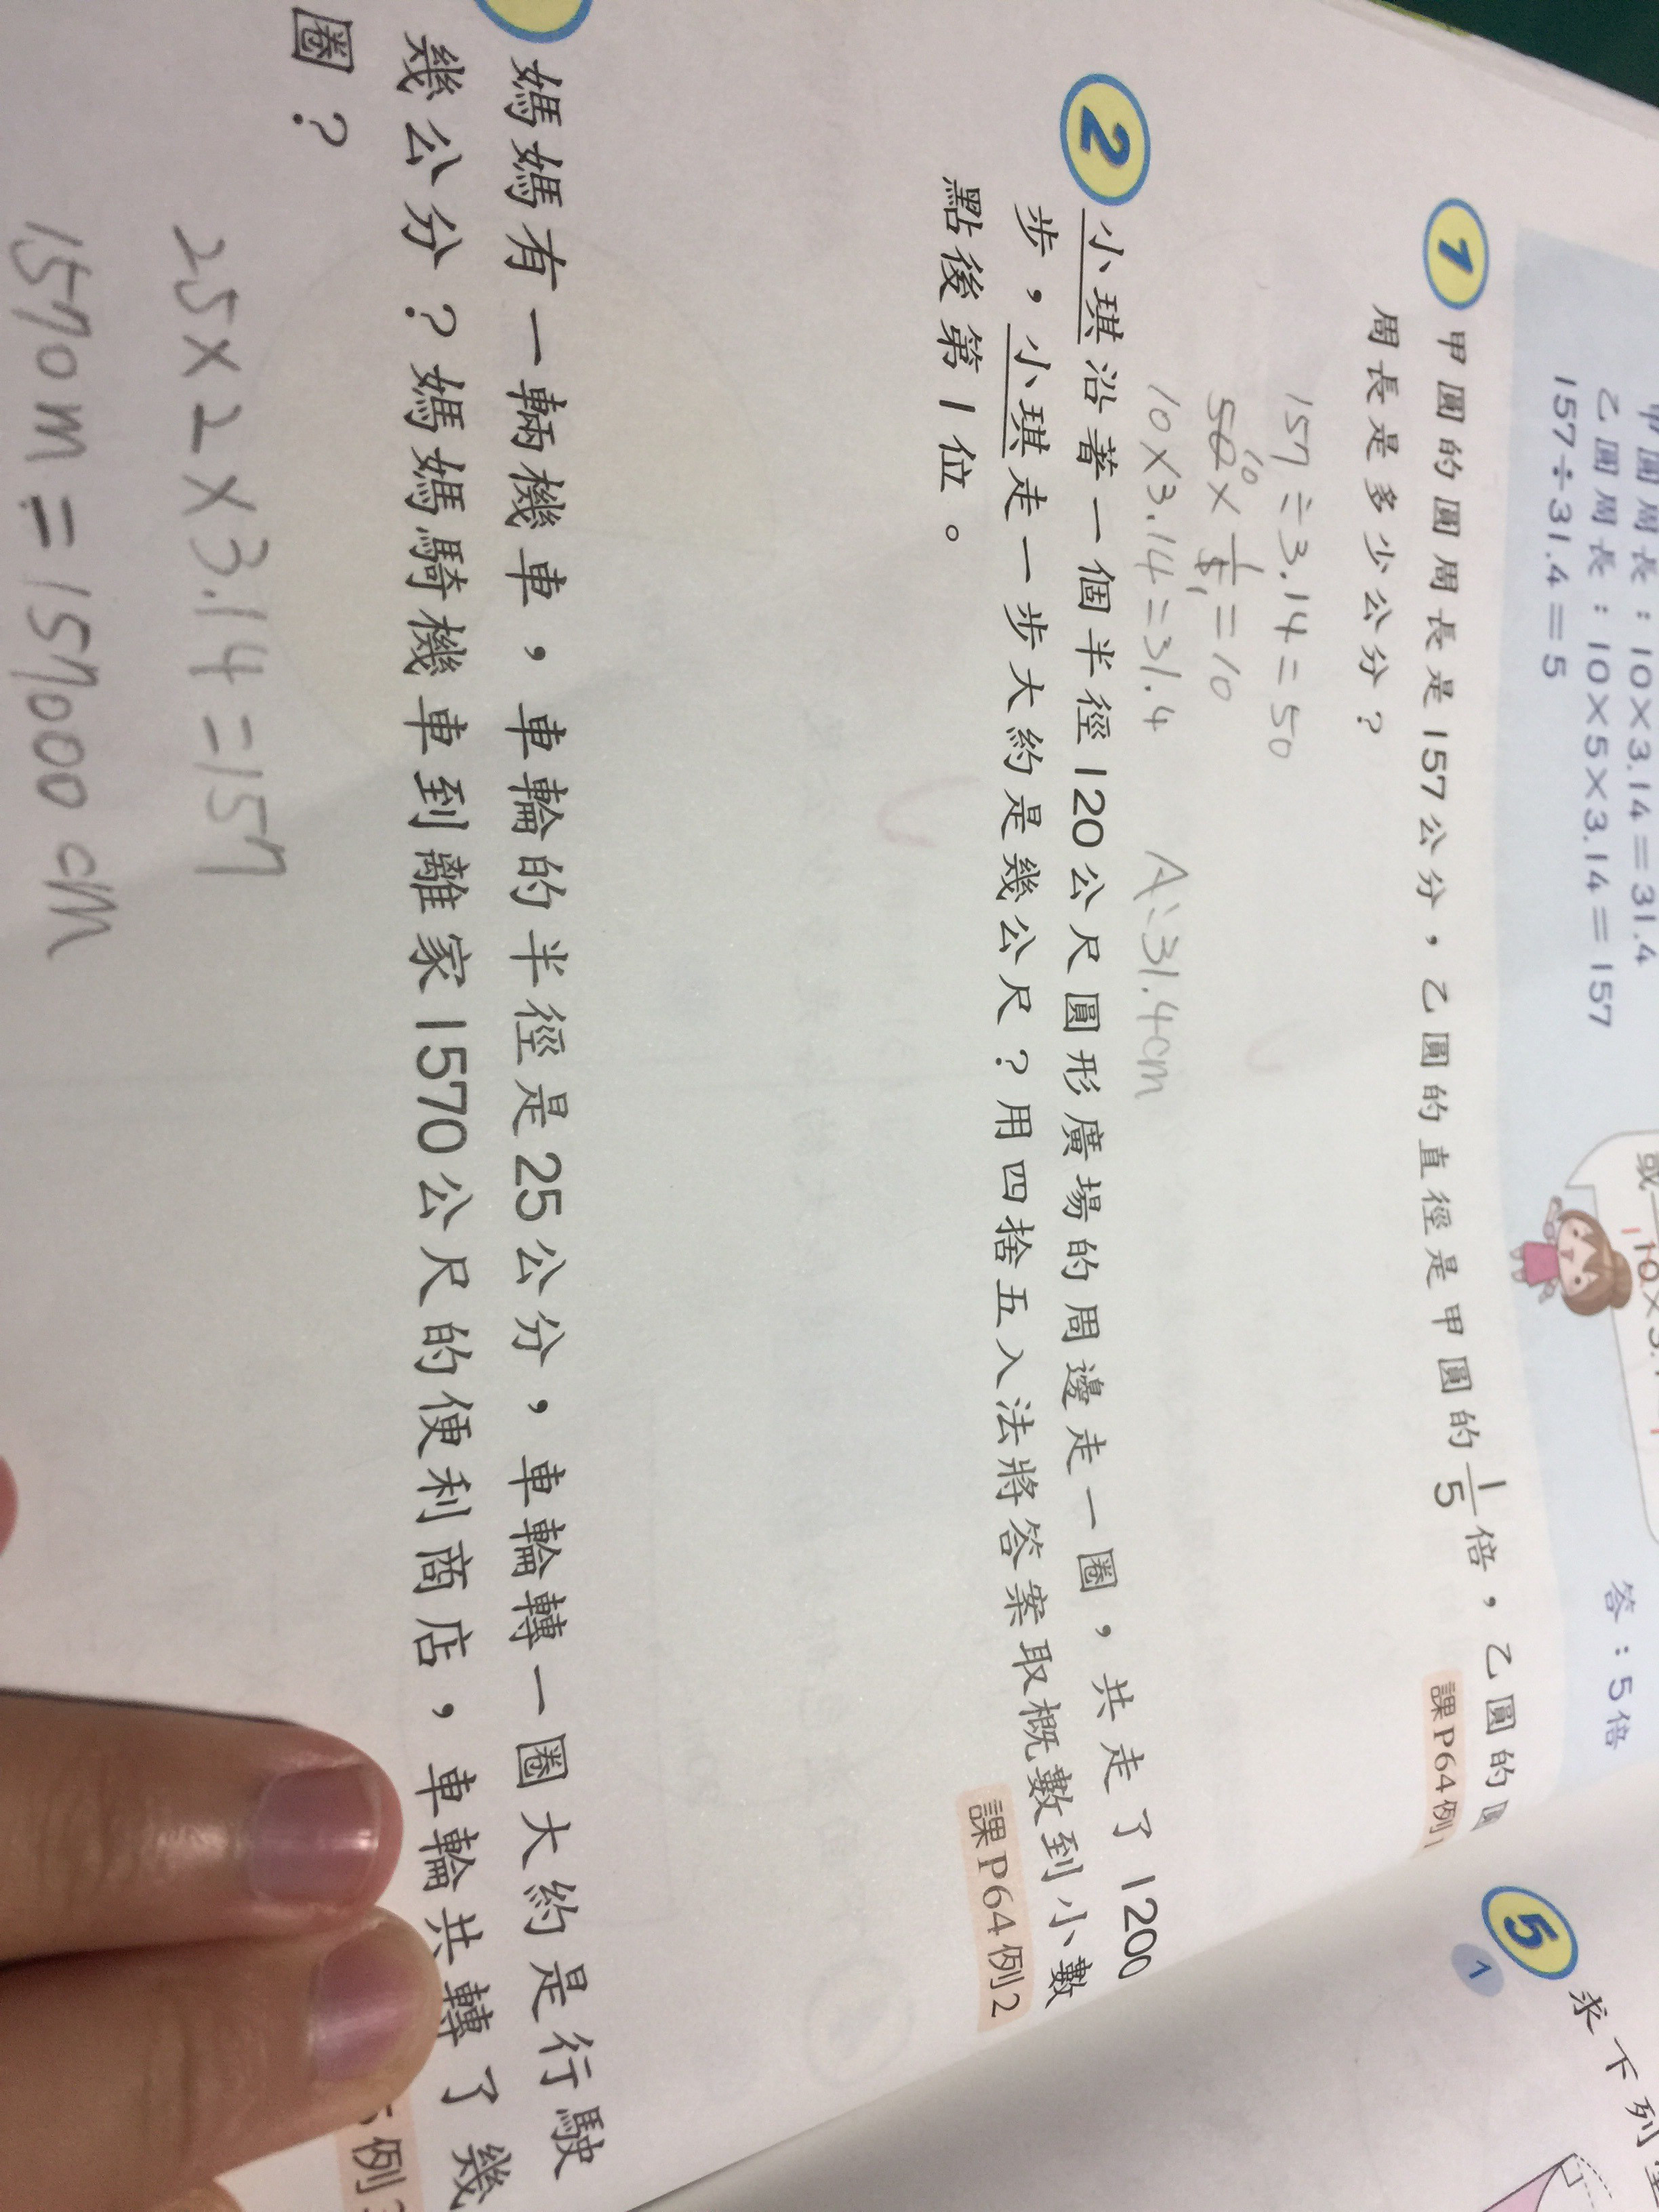 甲圓周長：10×3.14＝31.4
乙圓周長：10×5×3.14＝157
157÷31.4＝5
答：5倍
或
1 甲圓的圓周長是157公分，乙圓的直徑是甲圓的1/5倍，乙圓的圓
周長是多少公分？
課P64例1
157÷3.14=50
50×1/5=10
10
1
10×3.14=31.4
A:31.4cm
2 小琪沿著一個半徑120公尺圓形廣場的周邊走一圈，共走了1200
步，小琪走一步大約是幾公尺？用四捨五入法將答案取概數到小數
點後第1位。
課P64例2
媽媽有一輛機車，車輪的半徑是25公分，車輪轉一圈大約是行駛
幾公分？媽媽騎機車到離家1570公尺的便利商店，車輪共轉了幾
圈？
例3
25×2×3.14=157
1570m=157000cm
5
1
求下列